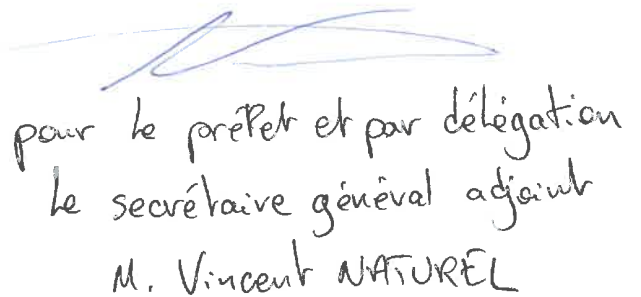 pour le préfet et par délégation
le secrétaire général adjoint
M. Vincent NATUREL